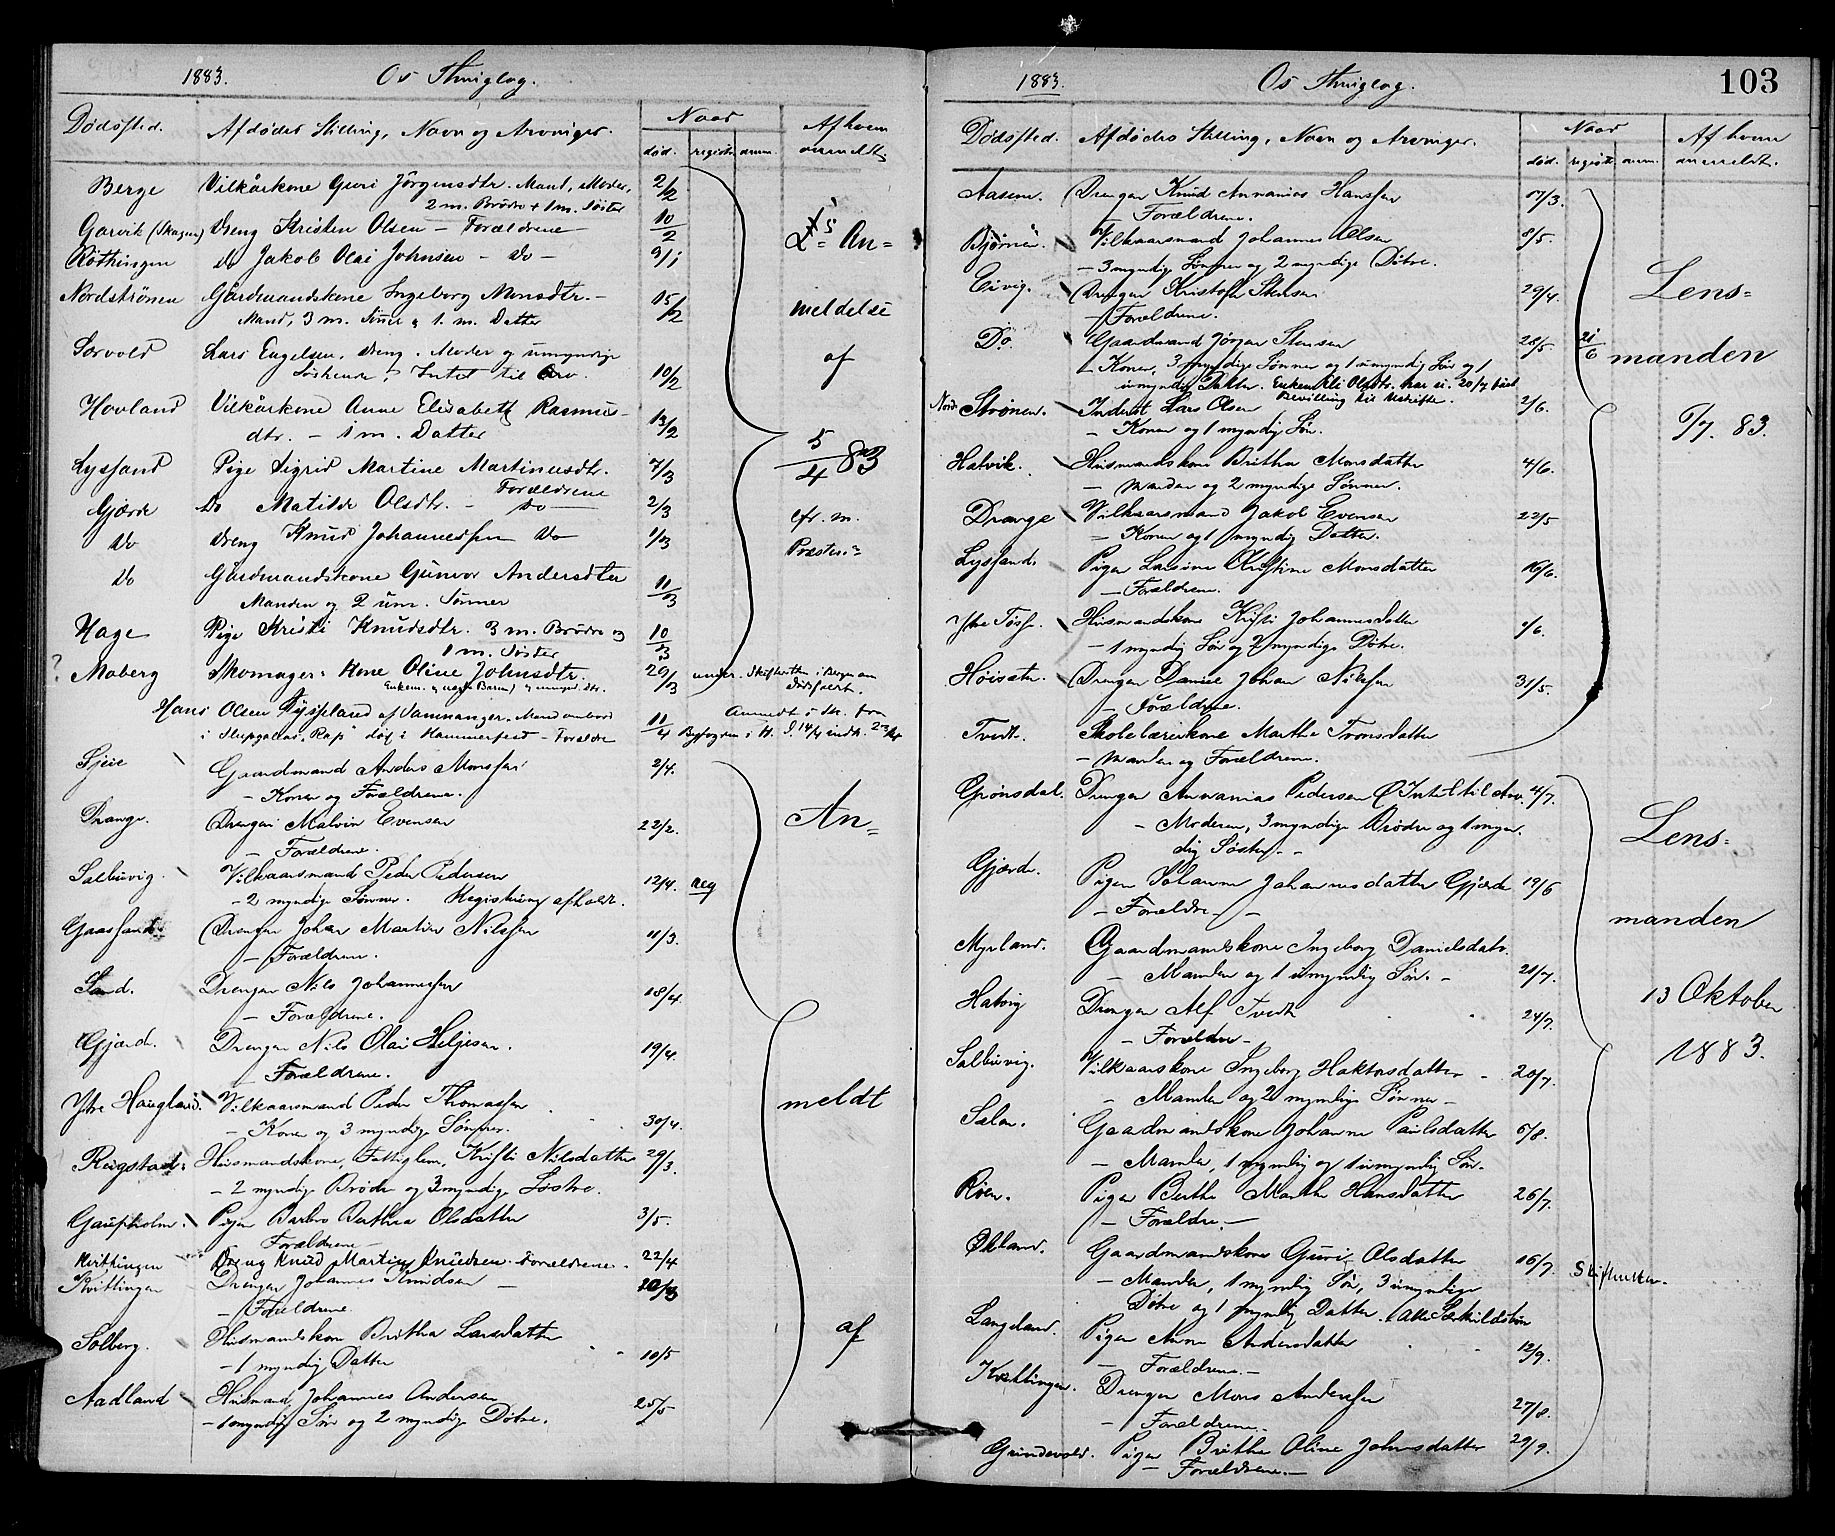 1883. Os Thinglag.
Dødssted. Afdødes Stilling, Navn og Arvinger. Naar Af hvem
død. registr. anm. anmeldt
Berge Vilkårkone Guri Jörgensdtr. Mand, Moder, 2/2
2 m. Brødre + 1 m. Søster
Garvik (Skagen) Dreng Kristen Olsen – Forældrene 10/2
Röthingen Do Jakob Olai Johnsen – Do – 9/1
An=
Nordströnen Gårdmandskone Ingeborg Monsdtr. – 15/2
Mand, 3 m. Sönner & 1. m. Datter
meldelse
Sörvold Lars Engelsen, Dreng. Moder og umyndige
Söskende, Intet til Arv. 10/2
af
Hovland Vilkårkone Anne Elisabeth Rasmus-
dtr. – 1 m. Datter 13/2
5/4 83
Lyssand Pige Sigrid Martine Martinusdtr. 7/3
Forældrene
Gjærde Do Matilde Olsdtr. – Do – 2/3
cfr. m.
Do Dreng Knud Johannessen Do 1/3
Præsten
Do Gårdmandskone Gunvor Andersdter 11/3
Manden og 2 um. Sønner
Hage Pige Kristi Knudsdtr. 3 m. Brødre og 10/3
1 m. Søster
? Moberg Skomager: Kone Oline Johnsdtr. 29/3 under. Skifteretten i Bergen om
Dødsfaldet.
Hans Olsen Tysseland af Samnanger. Mand ombord 11/4 Anmeldt i Skr. fra
i Slupgalias "Rap" død i Hammerfest – Forældre Byfogden i H. d. 14/4 indk. 23/4
Sjeie Gaardmand Anders Monssen 2/4.
– Konen og Forældrene.
Drange. Drengen Malvin Evensen 22/2.
– Forældrene.
An=
Salbuvig. Vilkaarsmand Peder Pedersen 12/4. reg
– 2 myndige Sønner. Registrering afholdt.
Gaassand. Drengen Johan Martin Nilssen 11/3.
– Forældrene.
Sand. Drengen Nils Johannessen 18/4.
– Forældrene.
Gjærd. Drengen Nils Olai Heljesen. 19/4.
– Forældrene.
Ytre Haugland. Vilkaarsmand Peder Thomassen 30/4.
– Konen og 3 myndige Sønner.
meldt
Røgstad. Husmandskone, Fattiglem, Kristi Nilsdatter 29/3.
– 2 myndige Brødre og 3 myndige Søstre.
Gaupholm. Pigen Barbro Berthea Olsdatter 3/5.
Forældrene –
Kvittingen Dreng Knud Martin Knudsen. Forældrene. 22/4
Kvittingen Drengen Johannes Knudsen –
– Forældrene.
Solberg. Husmandskon Brithe Larsdatter 10/5
– 1 myndig Datter
af
Aadland Husmand Johannes Andersen 25/5
– 1 myndig Søn og 2 myndige Døtre.
1883. Os Thinglag. 103
Dødssted. Afdødes Stilling, Navn og Arvinger. Naar Af hvem
død. registr. anm. anmeldt.
Aasene. Drengen Knud Annanias Hanssen 17/3.
– Forældrene.
Bjørnen. Vilkaarsmand Johannes Olsen 8/5.
– 3 myndige Sønner og 2 myndige Døtre.
Eivig. Drengen Kristofer Stensen 29/4.
– Forældrene.
Lens=
Do Gaardmand Jørgen Stensen 28/5. 21/6
– Konen, 3 myndige Sønner og 1 umyndig Søn og 1
umyndig Datter. Enken Eli Olsdtr. har u. 20/7 faaet
Bevilling til Uskifte.
manden
Nord Strønen. Inderst Lars Olsen 2/6.
– Konen og 1 myndig Søn.
6/7. 83.
Hatvik. Husmandskone Brithe Monsdatter 4/6.
– Manden og 2 myndige Sønner.
Drange Vilkaarsmand Jakob Evensen 22/5
– Konen og 1 myndig Datter.
Lyssand. Pigen Larsine Kristine Monsdatter 16/6.
– Forældrene.
Ytre Tøsse. Husmandskone Kristi Johannesdatter 1/6.
– 1 myndig Søn og 2 myndige Døtre.
Høisæter. Drengen Daniel Johan Nilssen 31/5.
– Forældrene.
Tvedt. Skolelærerkone Marthe Tronsdatter
– Manden og Forældrene.
Grønsdal. Drengen Annanias Pedersen (Intet til Arv. 4/7.
– Moderen, 3 myndige Brødre og 1 myn-
dig Søster. –
Lens=
Gjærde. Pigen Johanne Johannesdatter Gjærde 19/6
– Forældre. –
manden
Myrland. Gaardmandskone Ingeborg Danielsdatr. 21/7.
– Manden og 1 umyndig Søn. –
13 Oktober
Hatvig Drengen Alf Tvedt 24/7.
– Forældre –
1883.
Salbuvig. Vilkaarskone Ingeborg Haktorsdatter 20/7.
– Manden og 2 myndige Sønner –
Sælen. Gaardmandskone Johanne Paulsdatter 6/8.
– Manden, 1 myndig og 1 umyndig Søn.
Røen. Pigen Berthe Marthe Hansdatter 26/7.
– Forældre. –
Økland. Gaardmandskone Guri Olsdatter 16/7. Skifteretten.
– Manden, 1 myndig Søn, 3 umyndige
Døtre og 1 myndig Datter.
Langeland. Pigen Anne Andersdatter 12/9.
– Forældrene. –
Kvittingen. Drengen Mons Anderssen 27/8.
– Forældrene. –
Grindevold. Pigen Brithe Oline Johnsdatter 29/9.
– Forældrene. –